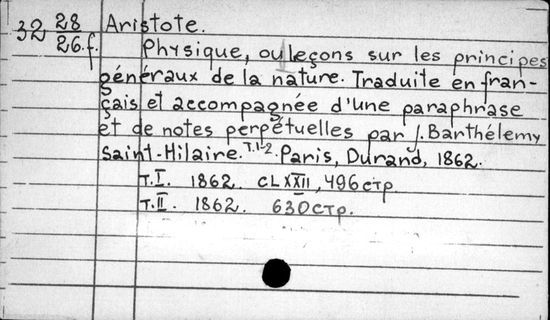 32 28/26.f. Aristote.
Physique, ou leçons sur les principes
généraux de la nature. Traduite en fran-
çais et accompagnée d'une paraphrase
et de notes perpétuelles par J. Barthélemy
Saint-Hilaire. T.1-2. Paris, Durand, 1862.
T.I. 1862. CLXXII, 496 стр.
T.II. 1862. 630 стр.